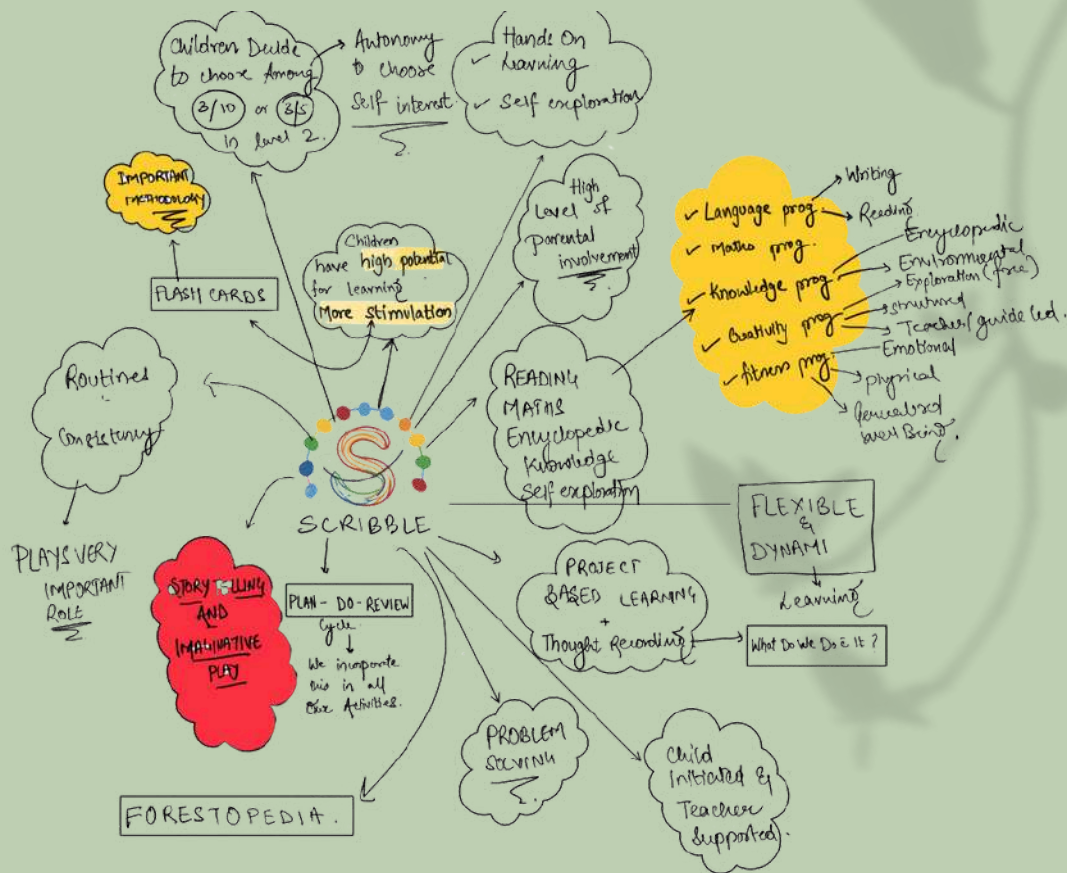 Children Decide
to choose Among
3/10 or 3/5
in level 2.
Autonomy
to choose
Self interest.
Hands On
✓ Learning
✓ Self exploration
IMPORTANT
METHODOLOGY
FLASH CARDS
Children
have high potential
for learning
More stimulation
High
Level of
parental
involvement
✓ Language prog.
Writing
Reading
✓ Maths prog.
✓ Knowledge prog.
Encyclopedic
Environmental
✓ Creativity prog
Exploration (free)
structured
Teacher/guide led.
✓ fitness prog.
Emotional
physical
Generalised
well Being.
Routines
Consistency
PLAYS VERY
IMPORTANT
ROLE
READING
MATHS
Encyclopedic
Knowledge
Self exploration
S
SCRIBBLE
FLEXIBLE
&
DYNAMI
Learning
STORY TELLING
AND
IMAGINATIVE
PLAY
PLAN - DO - REVIEW
Cycle.
We incorporate
this in all
Our Activities.
PROJECT
BASED LEARNING
+
Thought Recording
What Do We Do It ?
PROBLEM
SOLVING
Child
Initiated &
Teacher
Supported.
FORESTOPEDIA.